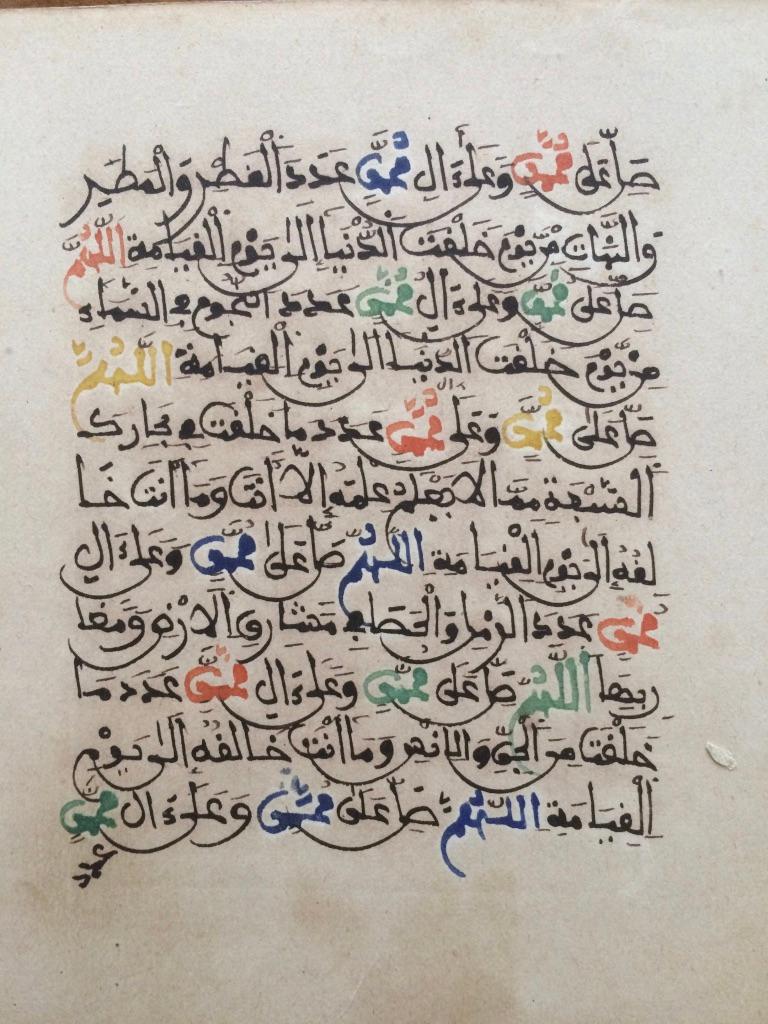 صَلِّ عَلَى مُحَمَّدٍ وَعَلَى ءَالِ مُحَمَّدٍ عَدَدَ الْقَطْرِ وَالْمَطَرِ
وَالنَّبَاتِ مِن يَّوْمِ خَلَقْتَ الدُّنْيَا إِلَى يَوْمِ الْقِيَامَةِ اللَّهُمَّ
صَلِّ عَلَى مُحَمَّدٍ وَعَلَى ءَالِ مُحَمَّدٍ عَدَدَ النُّجُومِ فِي السَّمَاءِ
مِن يَّوْمِ خَلَقْتَ الدُّنْيَا إِلَى يَوْمِ الْقِيَامَةِ اللَّهُمَّ
صَلِّ عَلَى مُحَمَّدٍ وَعَلَى ءَالِ مُحَمَّدٍ عَدَدَ مَا خَلَقْتَ فِي بِحَارِكَ
السَّبْعَةِ مِمَّا لَا يَعْلَمُ عِلْمَهُ إِلَّا أَنْتَ وَمَا أَنْتَ خَا
لِقُهُ إِلَى يَوْمِ الْقِيَامَةِ اللَّهُمَّ صَلِّ عَلَى مُحَمَّدٍ وَعَلَى ءَالِ
مُحَمَّدٍ عَدَدَ الرَّمْلِ وَالْحَصَى فِي مَشَارِقِ الْأَرْضِ وَمَغَا
رِبِهَا اللَّهُمَّ صَلِّ عَلَى مُحَمَّدٍ وَعَلَى ءَالِ مُحَمَّدٍ عَدَدَ مَا
خَلَقْتَ مِنَ الْجِنِّ وَالْإِنْسِ وَمَا أَنْتَ خَالِقُهُ إِلَى يَوْمِ
الْقِيَامَةِ اللَّهُمَّ صَلِّ عَلَى مُحَمَّدٍ وَعَلَى ءَالِ مُحَمَّدٍ
عَدَدَ